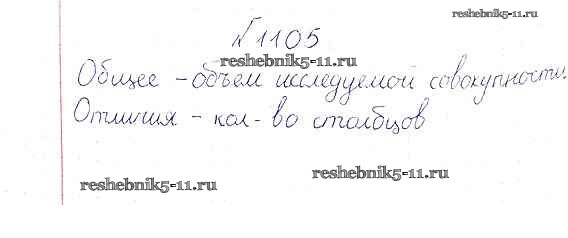 reshebnik5-11.ru
№1105
reshebnik5-11.ru
Общее - объем исследуемой совокупности.
Отличия - кол-во столбцов
reshebnik5-11.ru
reshebnik5-11.ru